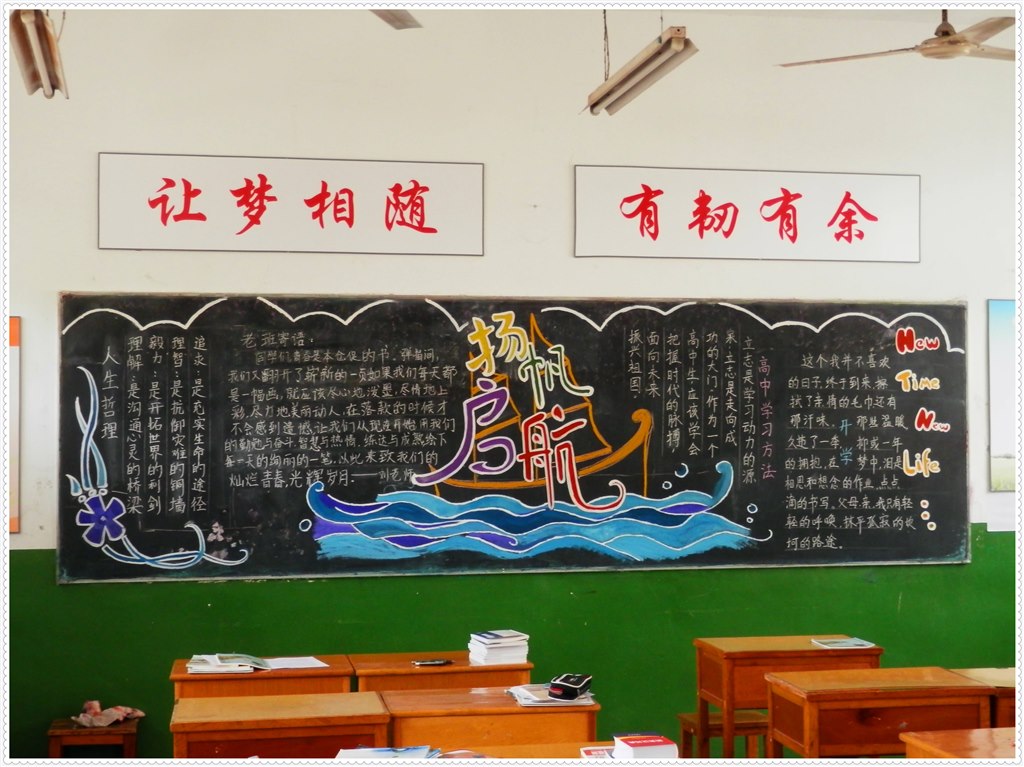 让梦相随
有韧有余
人生哲理
理解:是沟通心灵的桥梁
毅力:是开拓世界的利剑
理智:是抗御灾难的铜墙
追求:是充实生命的途径
老班寄语:
同学们,青春是本仓促的书,弹指间,
我们又翻开了崭新的一页.如果我们每天都
是一幅画,就应该尽心地泼墨,尽情地上
彩,尽力地美丽动人,在落款的时候才
不会感到遗憾.让我们从现在开始,用我们
的勤勉与奋斗,智慧与热情,练达与成熟绘下
每一天的绚丽的一笔,以此来致我们的
灿烂青春,光辉岁月. ——刘老师
扬帆
启航
高中学习方法
立志是学习动力的源
泉,立志是走向成
功的大门,作为一个
高中生应该学会
把握时代的脉搏,
面向未来
振兴祖国.
这个我并不喜欢
的日子,终于到来,擦
拭了亲情的毛巾还有
那汗味,那些温暖
久违了一季,抑或一年
的拥抱,在梦中,泪是
相思和想念的作点,点点
滴的书写.父母亲,我只有轻
轻的呼唤,抹平孤寂的坎
坷的路途。
开学
New
Time
New
Life